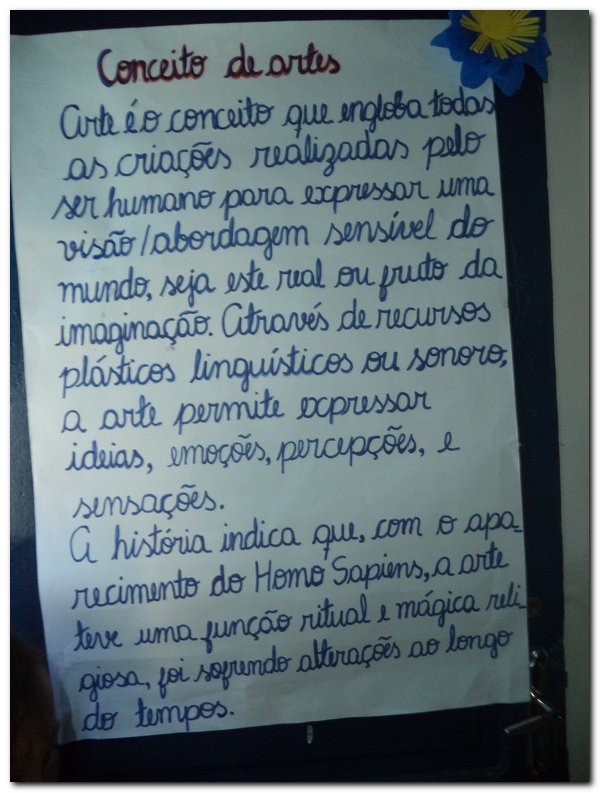 Conceito de artes
Arte é o conceito que engloba todas
as criações realizadas pelo
ser humano para expressar uma
visão/abordagem sensível do
mundo, seja este real ou fruto da
imaginação. Através de recursos
plásticos linguísticos ou sonoro,
a arte permite expressar
ideias, emoções, percepções, e
sensações.
A história indica que, com o apa-
recimento do Homo Sapiens, a arte
teve uma função ritual e mágica reli-
giosa, foi sofrendo alterações ao longo
do tempos.